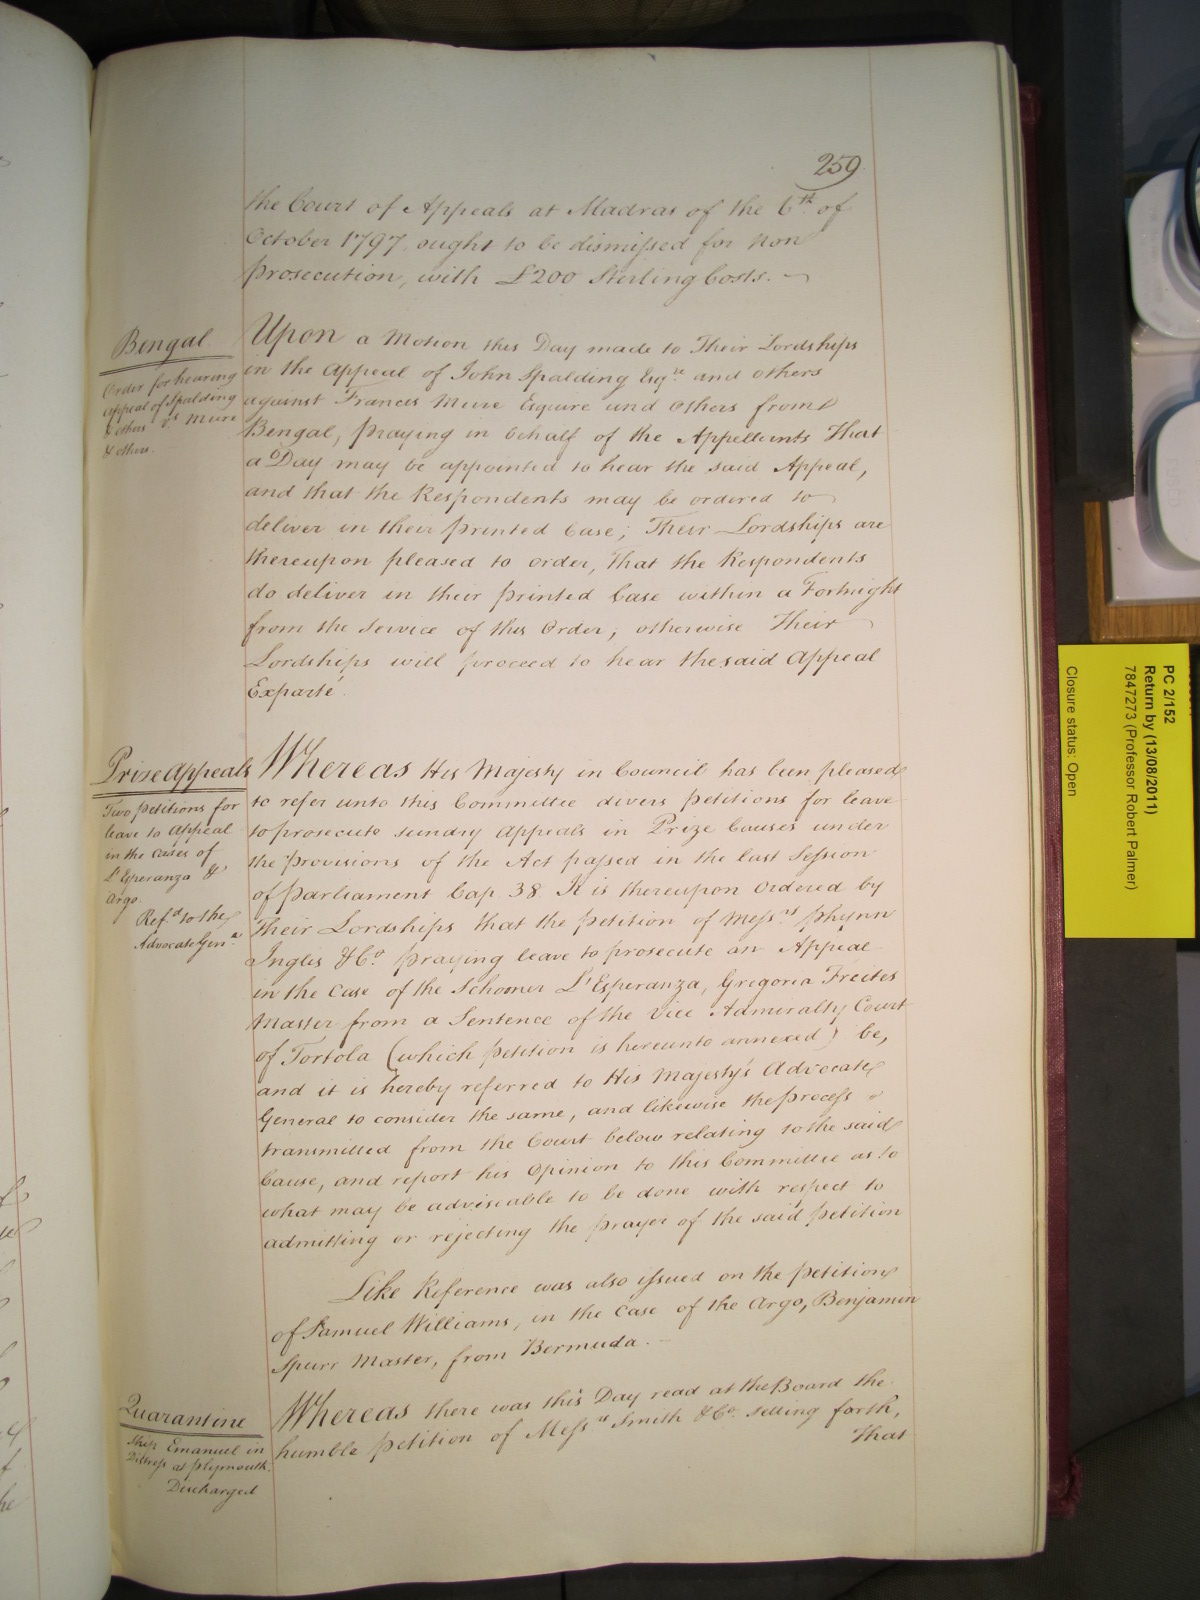 259
the Court of Appeals at Madras of the 6th of
October 1797 ought to be dismissed for non
prosecution, with £200 Sterling Costs.
Bengal
Order for hearing
appeal of Spalding
& others vs Muire
& others.
Upon a Motion this Day made to Their Lordships
in the Appeal of John Spalding Esqre and others
against Frances Muire Esquire and others from
Bengal, praying in behalf of the Appellants That
a Day may be appointed to hear the said Appeal,
and that the Respondents may be ordered to
deliver in their printed Case; Their Lordships are
thereupon pleased to order, that the Respondents
do deliver in their printed Case within a Fortnight
from the Service of this Order; otherwise Their
Lordships will proceed to hear the said Appeal
Exparté.
Prize Appeals
Two petitions for
leave to Appeal
in the cases of
L'Esperanza &
Argo.
Refd to the
Advocate Genl.
Whereas His Majesty in Council has been pleased
to refer unto this Committee divers petitions for leave
to prosecute sundry Appeals in Prize Causes under
the provisions of the Act passed in the last Session
of parliament Cap. 38. It is thereupon Ordered by
Their Lordships that the petition of Messrs phynn
Inglis & Co. praying leave to prosecute an Appeal
in the Case of the Schooner L'Esperanza, Gregoria Freites
Master from a Sentence of the Vice Admiralty Court
of Tortola (which petition is hereunto annexed) be,
and it is hereby referred to His Majesty's Advocate
General to consider the same, and likewise the process
transmitted from the Court below relating to the said
Cause, and report his Opinion to this Committee as to
what may be adviseable to be done with respect to
admitting or rejecting the prayer of the said petition
Like Reference was also issued on the petition
of Samuel Williams, in the Case of the Argo, Benjamin
Spurr Master, from Bermuda.
Quarantine
Ship Emanuel in
Distress at plymouth.
Discharged
Whereas there was this Day read at the Board the
humble petition of Messrs Smith & Co. setting forth,
That
PC 2/152
Return by (13/08/2011)
7847273 (Professor Robert Palmer)
Closure status: Open